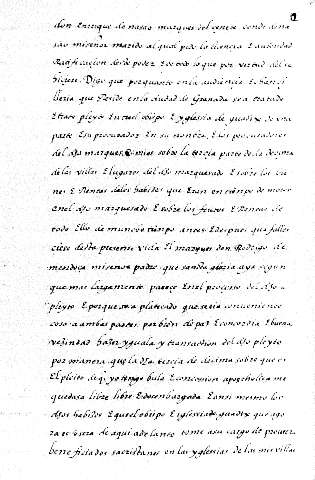 don Enrique de nasao marques del cenete conde de na
sao mi señor marido al qual pido la licencia E autoridad
Ratificacion deste poder E de todo lo que por virtud del se
hiziere Digo que por quanto en la audiencia E chanci
lleria que Reside en la ciudad de Granada se a tratado
E trata pleyto Entre el obispo E yglesia de guadix de una
parte E su procurador En su nonbre E los procuradores
del dho marques E mios sobre la tercia parte de la decima
de las villas E lugares del dho marquesado E sobre los vie
nes E Rentas de los habices que Eran en tienpo de moros
En el dho marquesado E sobre los frutos E Rentas de
todo Ello de muncho tienpo antes E despues que falles
ciese desta presente vida El marques don Rodrigo de
mendoça mi señor padre que sancta gloria aya segun
que mas largamente paresçe En el proceso del dho
pleyto E porque se a platicado que seria conveniente
cosa a ambas partes por bien de paz E concordia E buena
vezindad hazer yguala y transaction del dho pleyto
por manera que la dha tercia de decima sobre que es
El pleito de que yo tengo bula E concesion apostholica me
quedase libre E desenbargada E ansi mesmo los
dhos habices E que el obispo E iglesia de guadix que ago
ra es E sera de aqui adelante tome a su cargo de proveer
beneficiados sacristanes en las yglesias de las mis villas